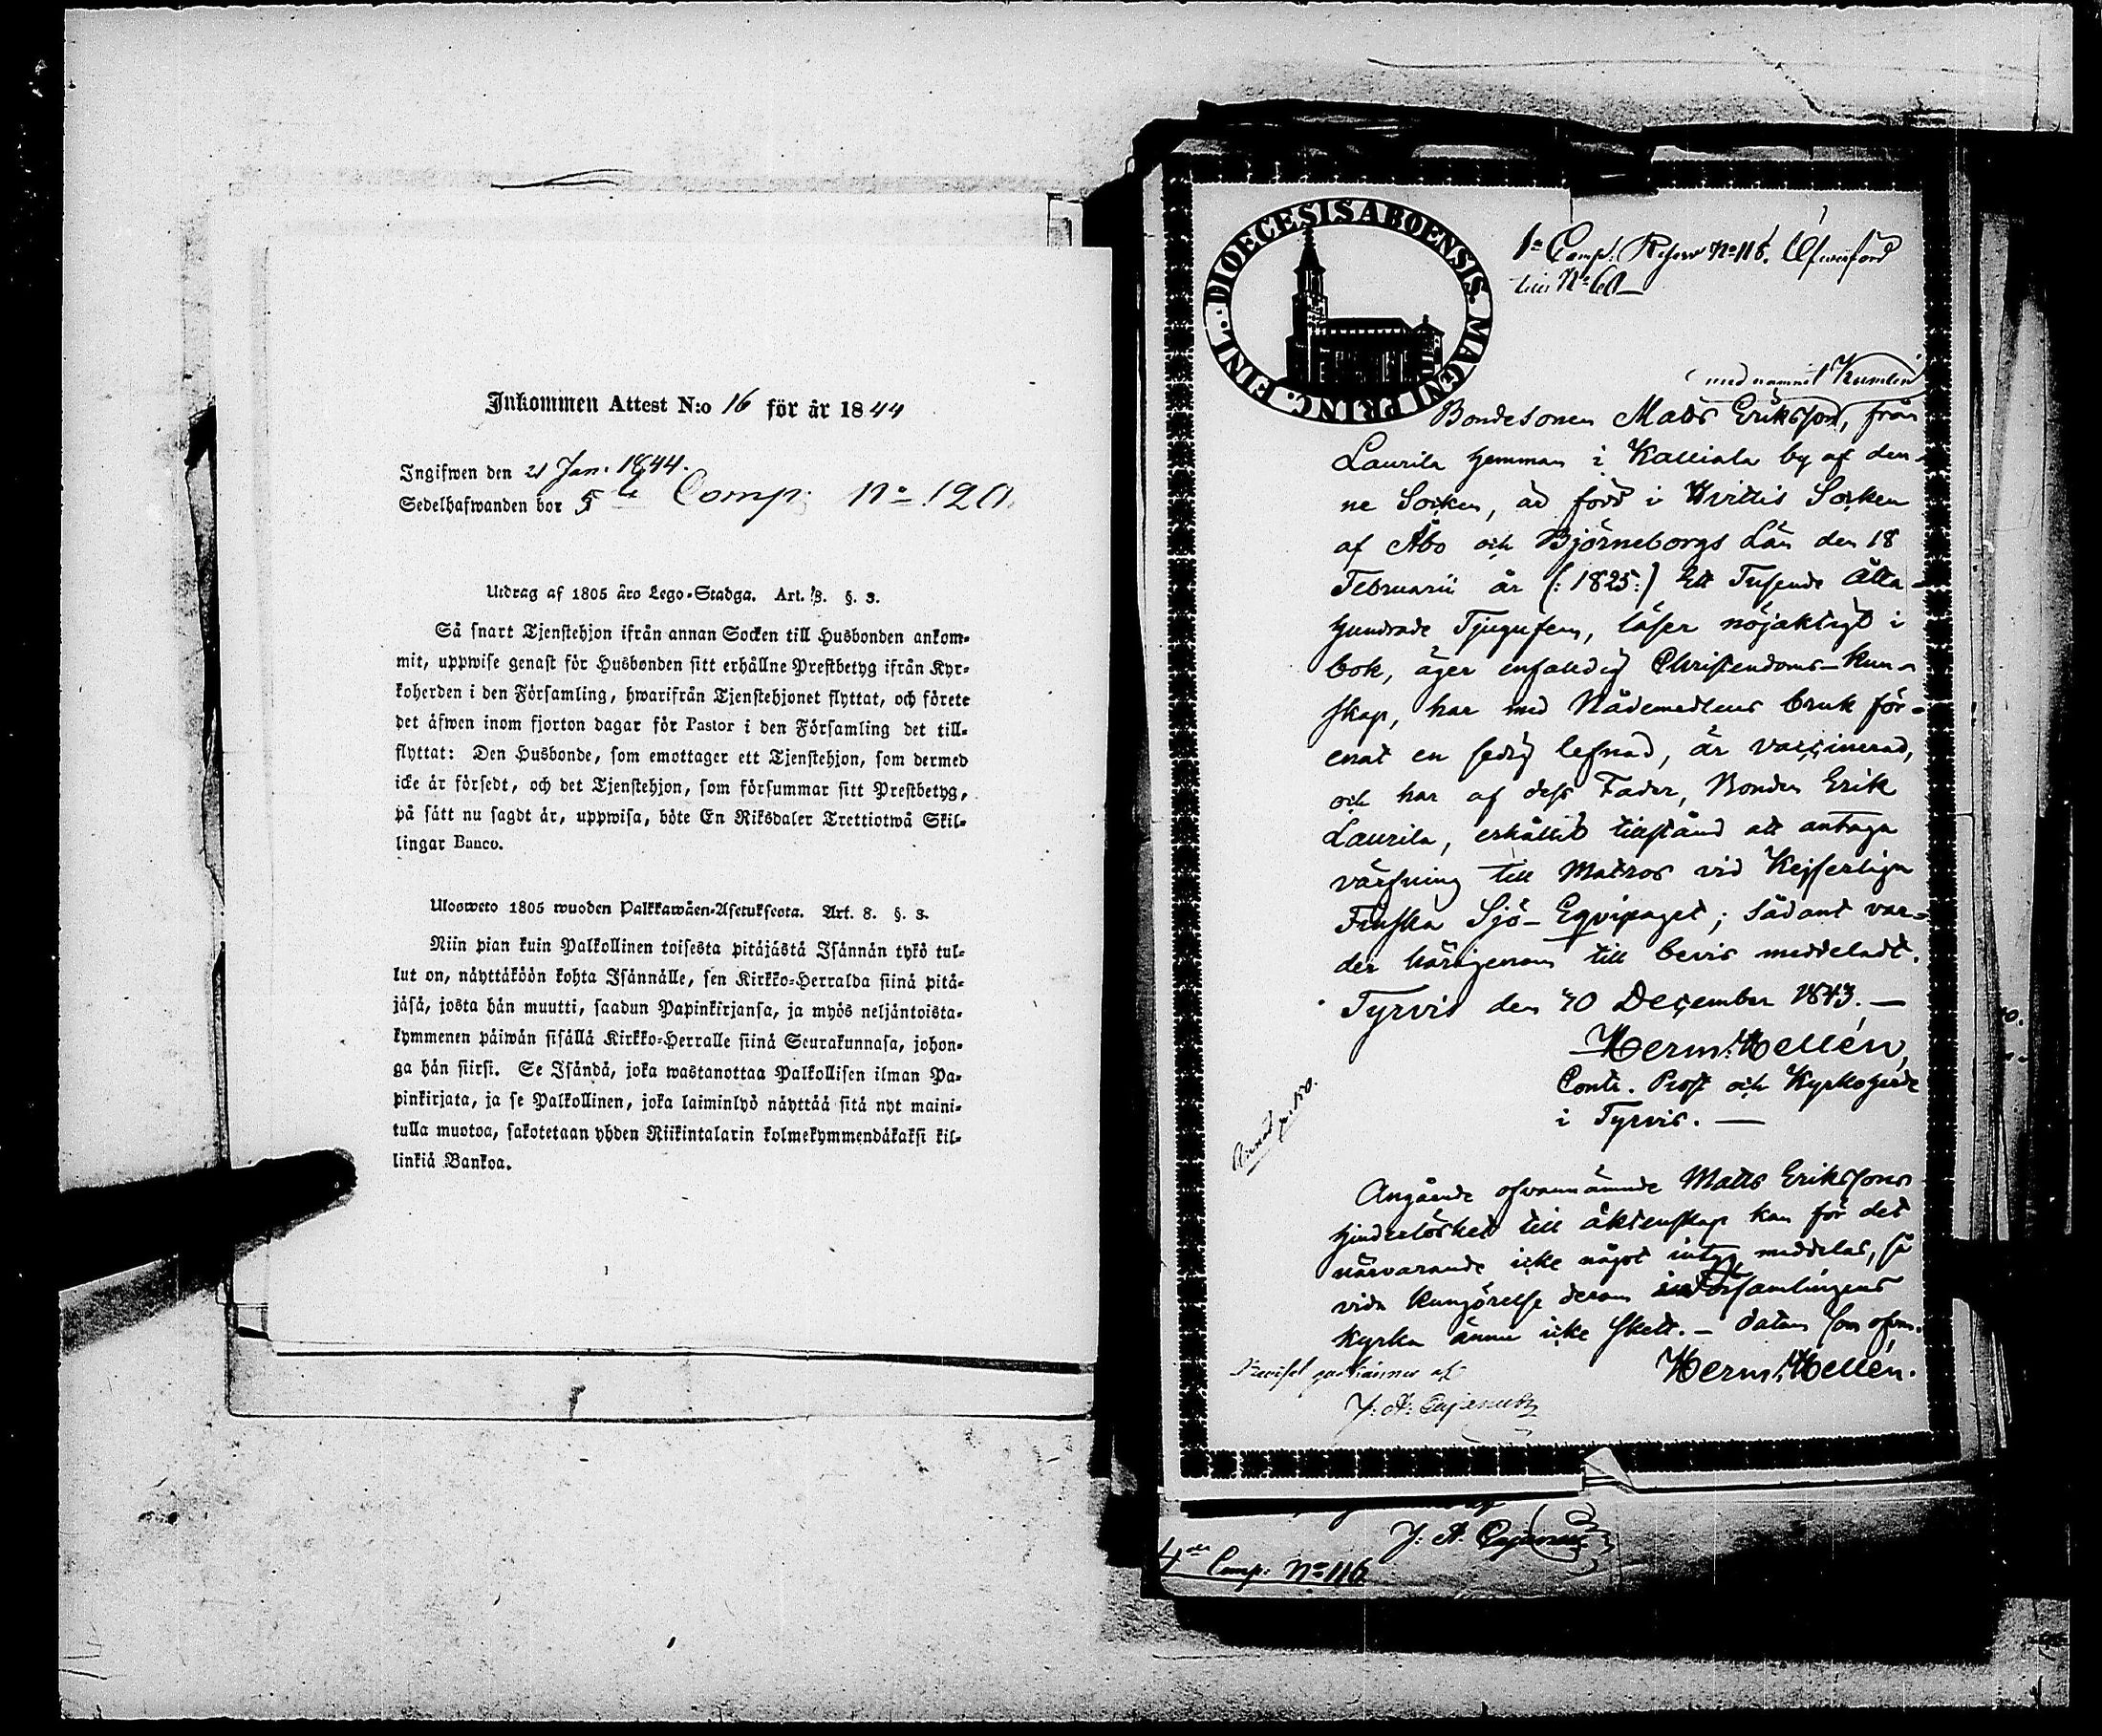 Inkommen Attest N:o 16 för år 1844
Ingifwen den 21 Jan. 1844.
Sedelhafwanden bor 5te Comp. No 120.
Utdrag af 1805 års Lego-Stadga. Art. 8. §. 3.
Så snart Tjenstehjon ifrån annan Socken till Husbonden ankom-
mit, uppwise genast för Husbonden sitt erhållne Prestbetyg ifrån Kyr-
koherden i den Församling, hwarifrån Tjenstehjonet flyttat, och förete
det äfwen inom fjorton dagar för Pastor i den Församling det till-
flyttat: Den Husbonde, som emottager ett Tjenstehjon, som dermed
icke är försedt, och det Tjenstehjon, som försummar sitt Prestbetyg,
på sätt nu sagdt är, uppwisa, böte En Riksdaler Trettiotwå Skil-
lingar Banco.
Ulosweto 1805 wuoden Palkkawäen-Asetuksesta. Art. 8. §. 3.
Niin pian kuin Palkollinen toisesta pitäjästä Isännän tykö tul-
lut on, näyttäköön kohta Isännälle, sen Kirkko-Herralda siinä pitä-
jäsä, josta hän muutti, saadun Papinkirjansa, ja myös neljäntoista-
kymmenen päiwän sisällä Kirkko-Herralle siinä Seurakunnasa, johon-
ga hän siirsi. Se Isändä, joka wastanottaa Palkollisen ilman Pa-
pinkirjata, ja se Palkollinen, joka laiminlyö näyttää sitä nyt maini-
tulla muotoa, sakotetaan yhden Riikintalarin kolmekymmendäkaksi kil-
linkiä Bankoa.
DIOECESIS ABOENSIS. MAGNI PRINC. FINL.
1a Comp. Reserv No 116. Öfwerförd
till No 60
med namnet Kumlin
Bondesonen Matts Eriksson, från
Laurila hemman i Kalliala by af den-
ne Socken, är född i Hvittis Socken
af Åbo och Björneborgs Län den 18
Februarii år (: 1825:) Ett Tusende Åtta-
hundrade Tjugufem, läser nöjaktigt i
bok, äger enfaldig Christendoms-kun-
skap, har med Nådemedlens bruk för-
enat en sedig lefnad, är vaccinerad,
och har af dess Fader, Bonden Erik
Laurila, erhållit tillstånd att antaga
värfning till Matros vid Kejserliga
Finska Sjö-Eqvipaget; sådant var-
der härigenom till bevis meddeladt.
Tyrvis den 30 December 1843.—
Herm: Hellén,
Contr. Prost och Kyrkoherde
i Tyrvis. —
Angående ofvannämnde Matts Erikssons
hinderlöshet till äktenskap kan för det
närvarande icke något intyg meddelas, så
vida kungörelse derom i Församlingens
kyrka ännu icke skett. — datum som ofvan.
Herm: Hellén.
godkännes af
J. A. Cajanus
J. A. Cajanus
4de Comp. No 116